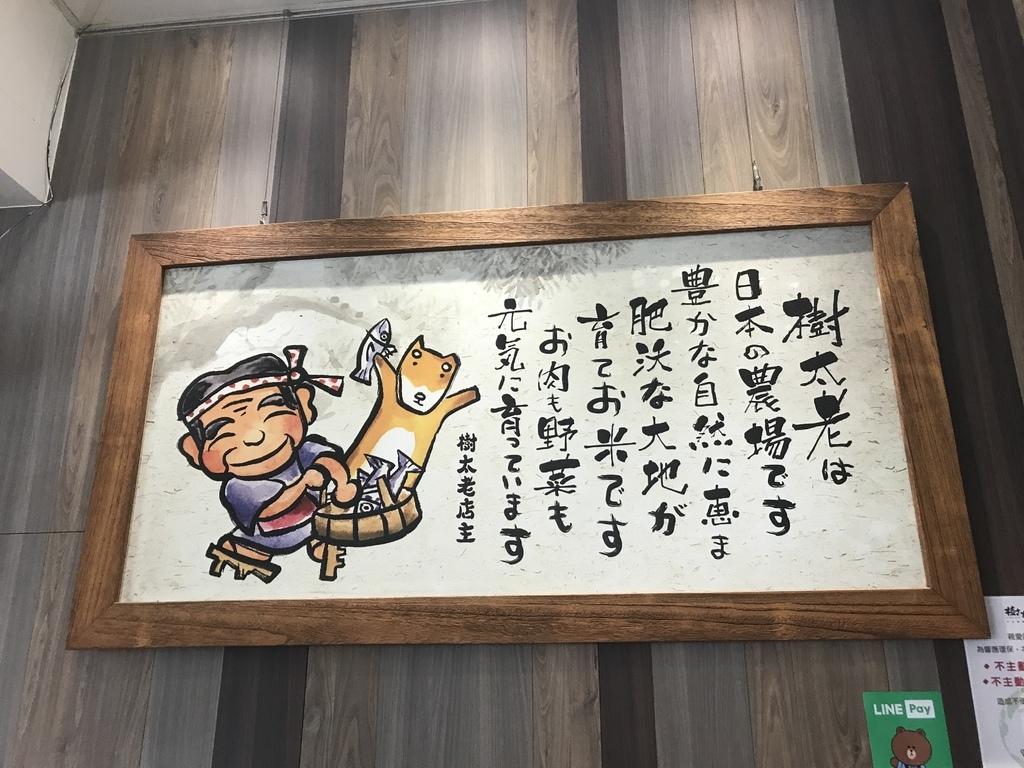 樹太老は
日本の農場です
豊かな自然に恵ま
肥沃な大地が
育てお米です
お肉も野菜も
元気に育っています
樹太老店主
LINE Pay
不主動
不主動